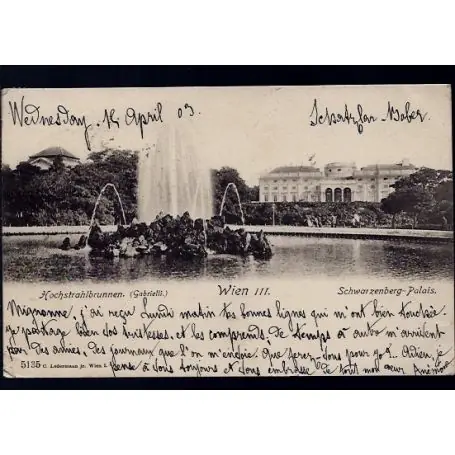 Wednesday 15 April 03.
Schatzlar-Bober.
Hochstrahlbrunnen. (Gabrielli.)
Wien III.
Schwarzenberg-Palais.
Mignonne, j'ai reçu lundi matin tes bonnes lignes qui m'ont bien touchée.
Je partage bien vos tristesses, et les comprends; de temps à autre m'arrivent
par des amies, des journaux que l'on m'envoie. Que ferez-vous pour y? Adieu, je
pense à vous toujours et vous embrasse de tout mon cœur Anémone
5135 C. Ledermann jr. Wien I.